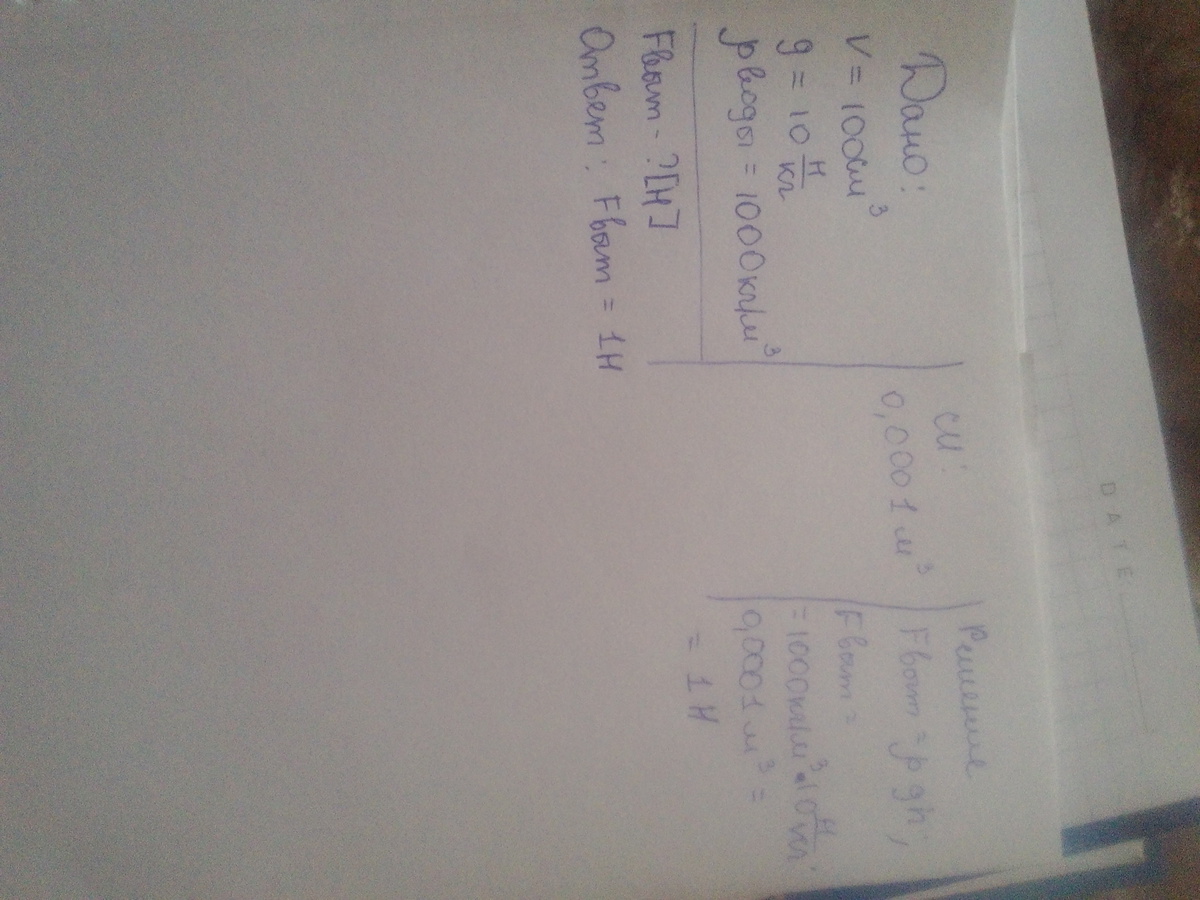 Дано:
V = 100см³
g = 10 Н/кг
ρ воды = 1000кг/м³
Fвыт - ? [Н]
Ответ: Fвыт = 1Н
СИ:
0,0001 м³
Решение
Fвыт = ρ gh;
Fвыт =
= 1000кг/м³ • 10 Н/кг ·
0,0001 м³ =
= 1 Н
DATE